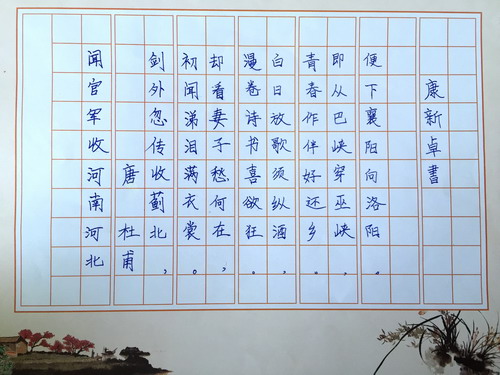 闻官军收河南河北
唐 杜甫
剑外忽传收蓟北，
初闻涕泪满衣裳。
却看妻子愁何在，
漫卷诗书喜欲狂。
白日放歌须纵酒，
青春作伴好还乡。
即从巴峡穿巫峡，
便下襄阳向洛阳。
康新卓書